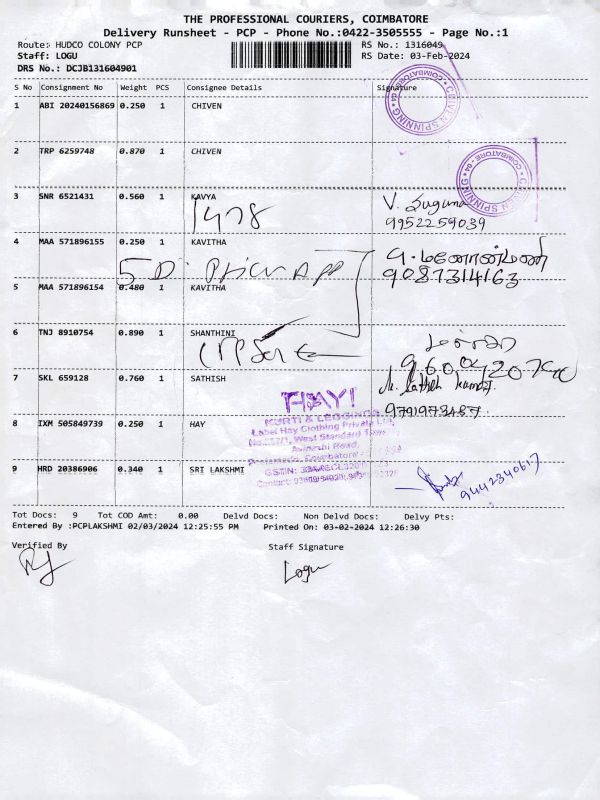 THE PROFESSIONAL COURIERS, COIMBATORE
Delivery Runsheet - PCP - Phone No.:0422-3505555 - Page No.:1
Route: HUDCO COLONY PCP RS No.: 1316049
Staff: LOGU RS Date: 03-Feb-2024
DRS No.: DCJB131604901
S No Consignment No Weight PCS Consignee Details Signature
1 ABI 20240156869 0.250 1 CHIVEN
2 TRP 6259748 0.870 1 CHIVEN
3 SNR 6521431 0.560 1 KAVYA V. Suguna
9952259039
4 MAA 571896155 0.250 1 KAVITHA
9087314163
5 MAA 571896154 0.480 1 KAVITHA
6 TNJ 8910754 0.890 1 SHANTHINI
7 SKL 659128 0.760 1 SATHISH M. Sathish Kumar
HAY!
KURTI & LEGGINGS
8 IXM 505849739 0.250 1 HAY
Label Hay Clothing Private Ltd,
West Standard
Avinashi Road,
9 HRD 20386906 0.340 1 SRI LAKSHMI 9442340617
Tot Docs: 9 Tot COD Amt: 0.00 Delvd Docs: Non Delvd Docs: Delvy Pts:
Entered By :PCPLAKSHMI 02/03/2024 12:25:55 PM Printed On: 03-02-2024 12:26:30
Verified By Staff Signature
Logu